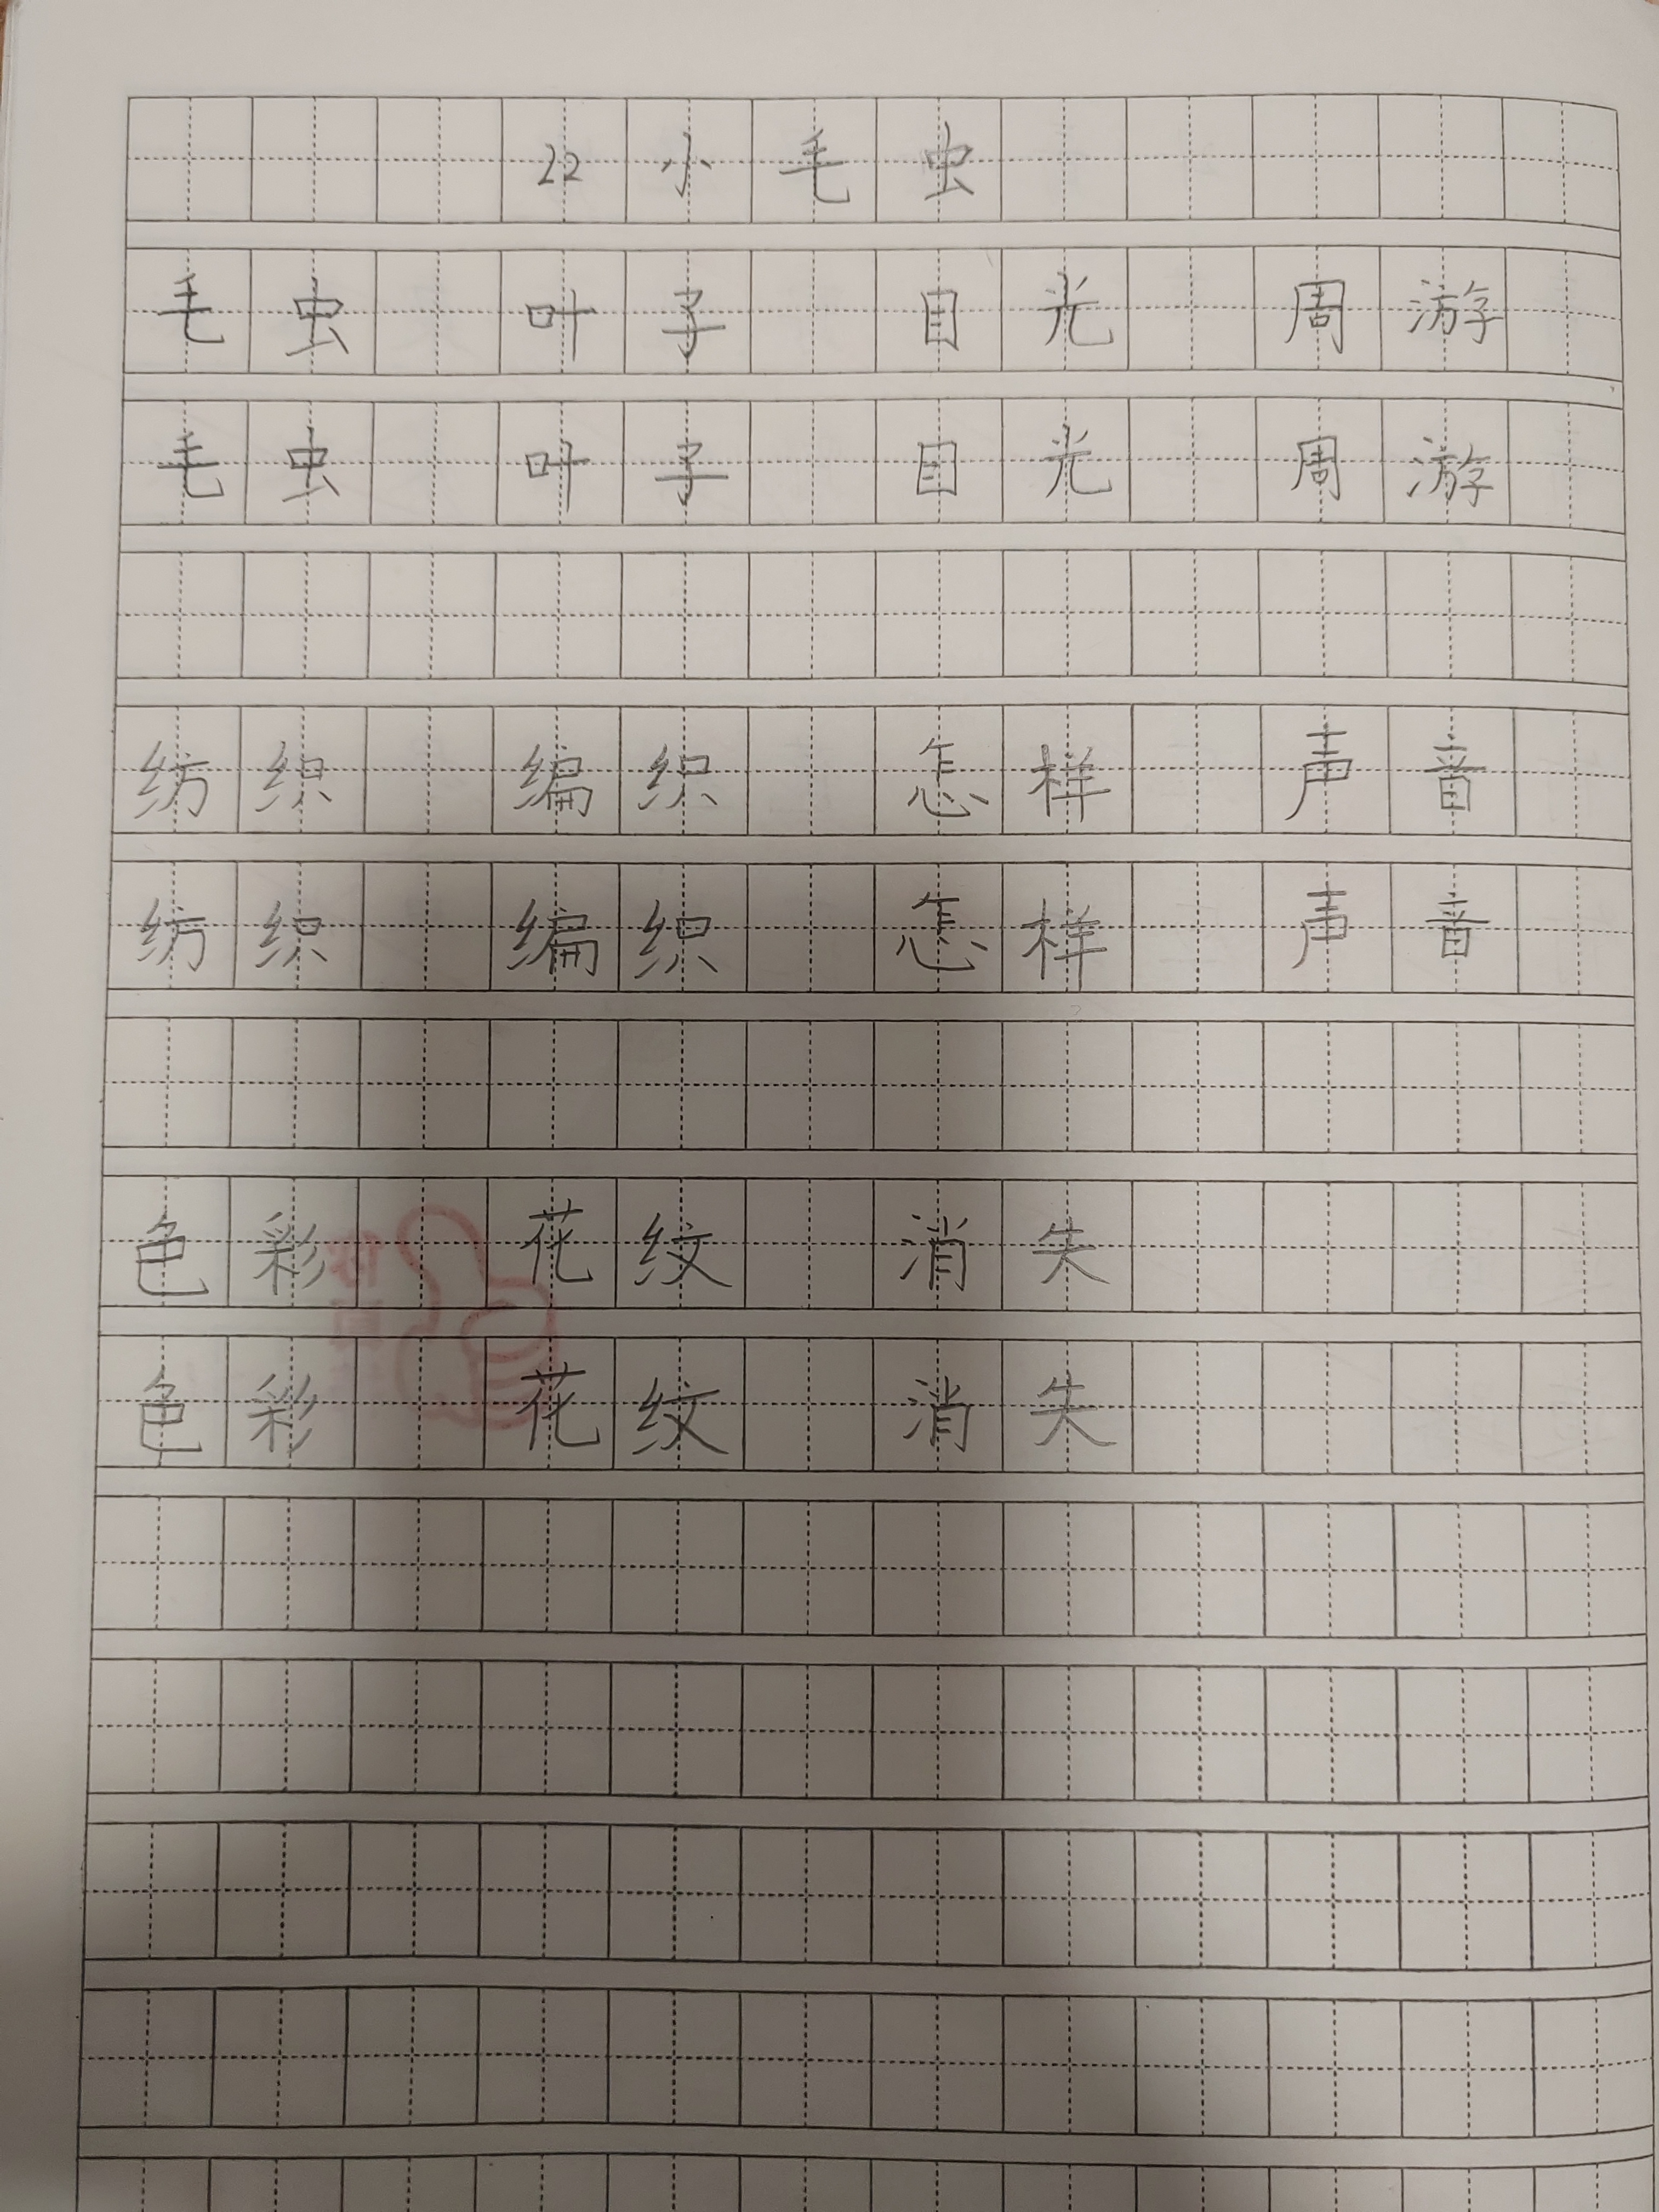 22 小毛虫
毛虫 叶子 目光 周游
毛虫 叶子 目光 周游
纺织 编织 怎样 声音
纺织 编织 怎样 声音
色彩 花纹 消失
色彩 花纹 消失